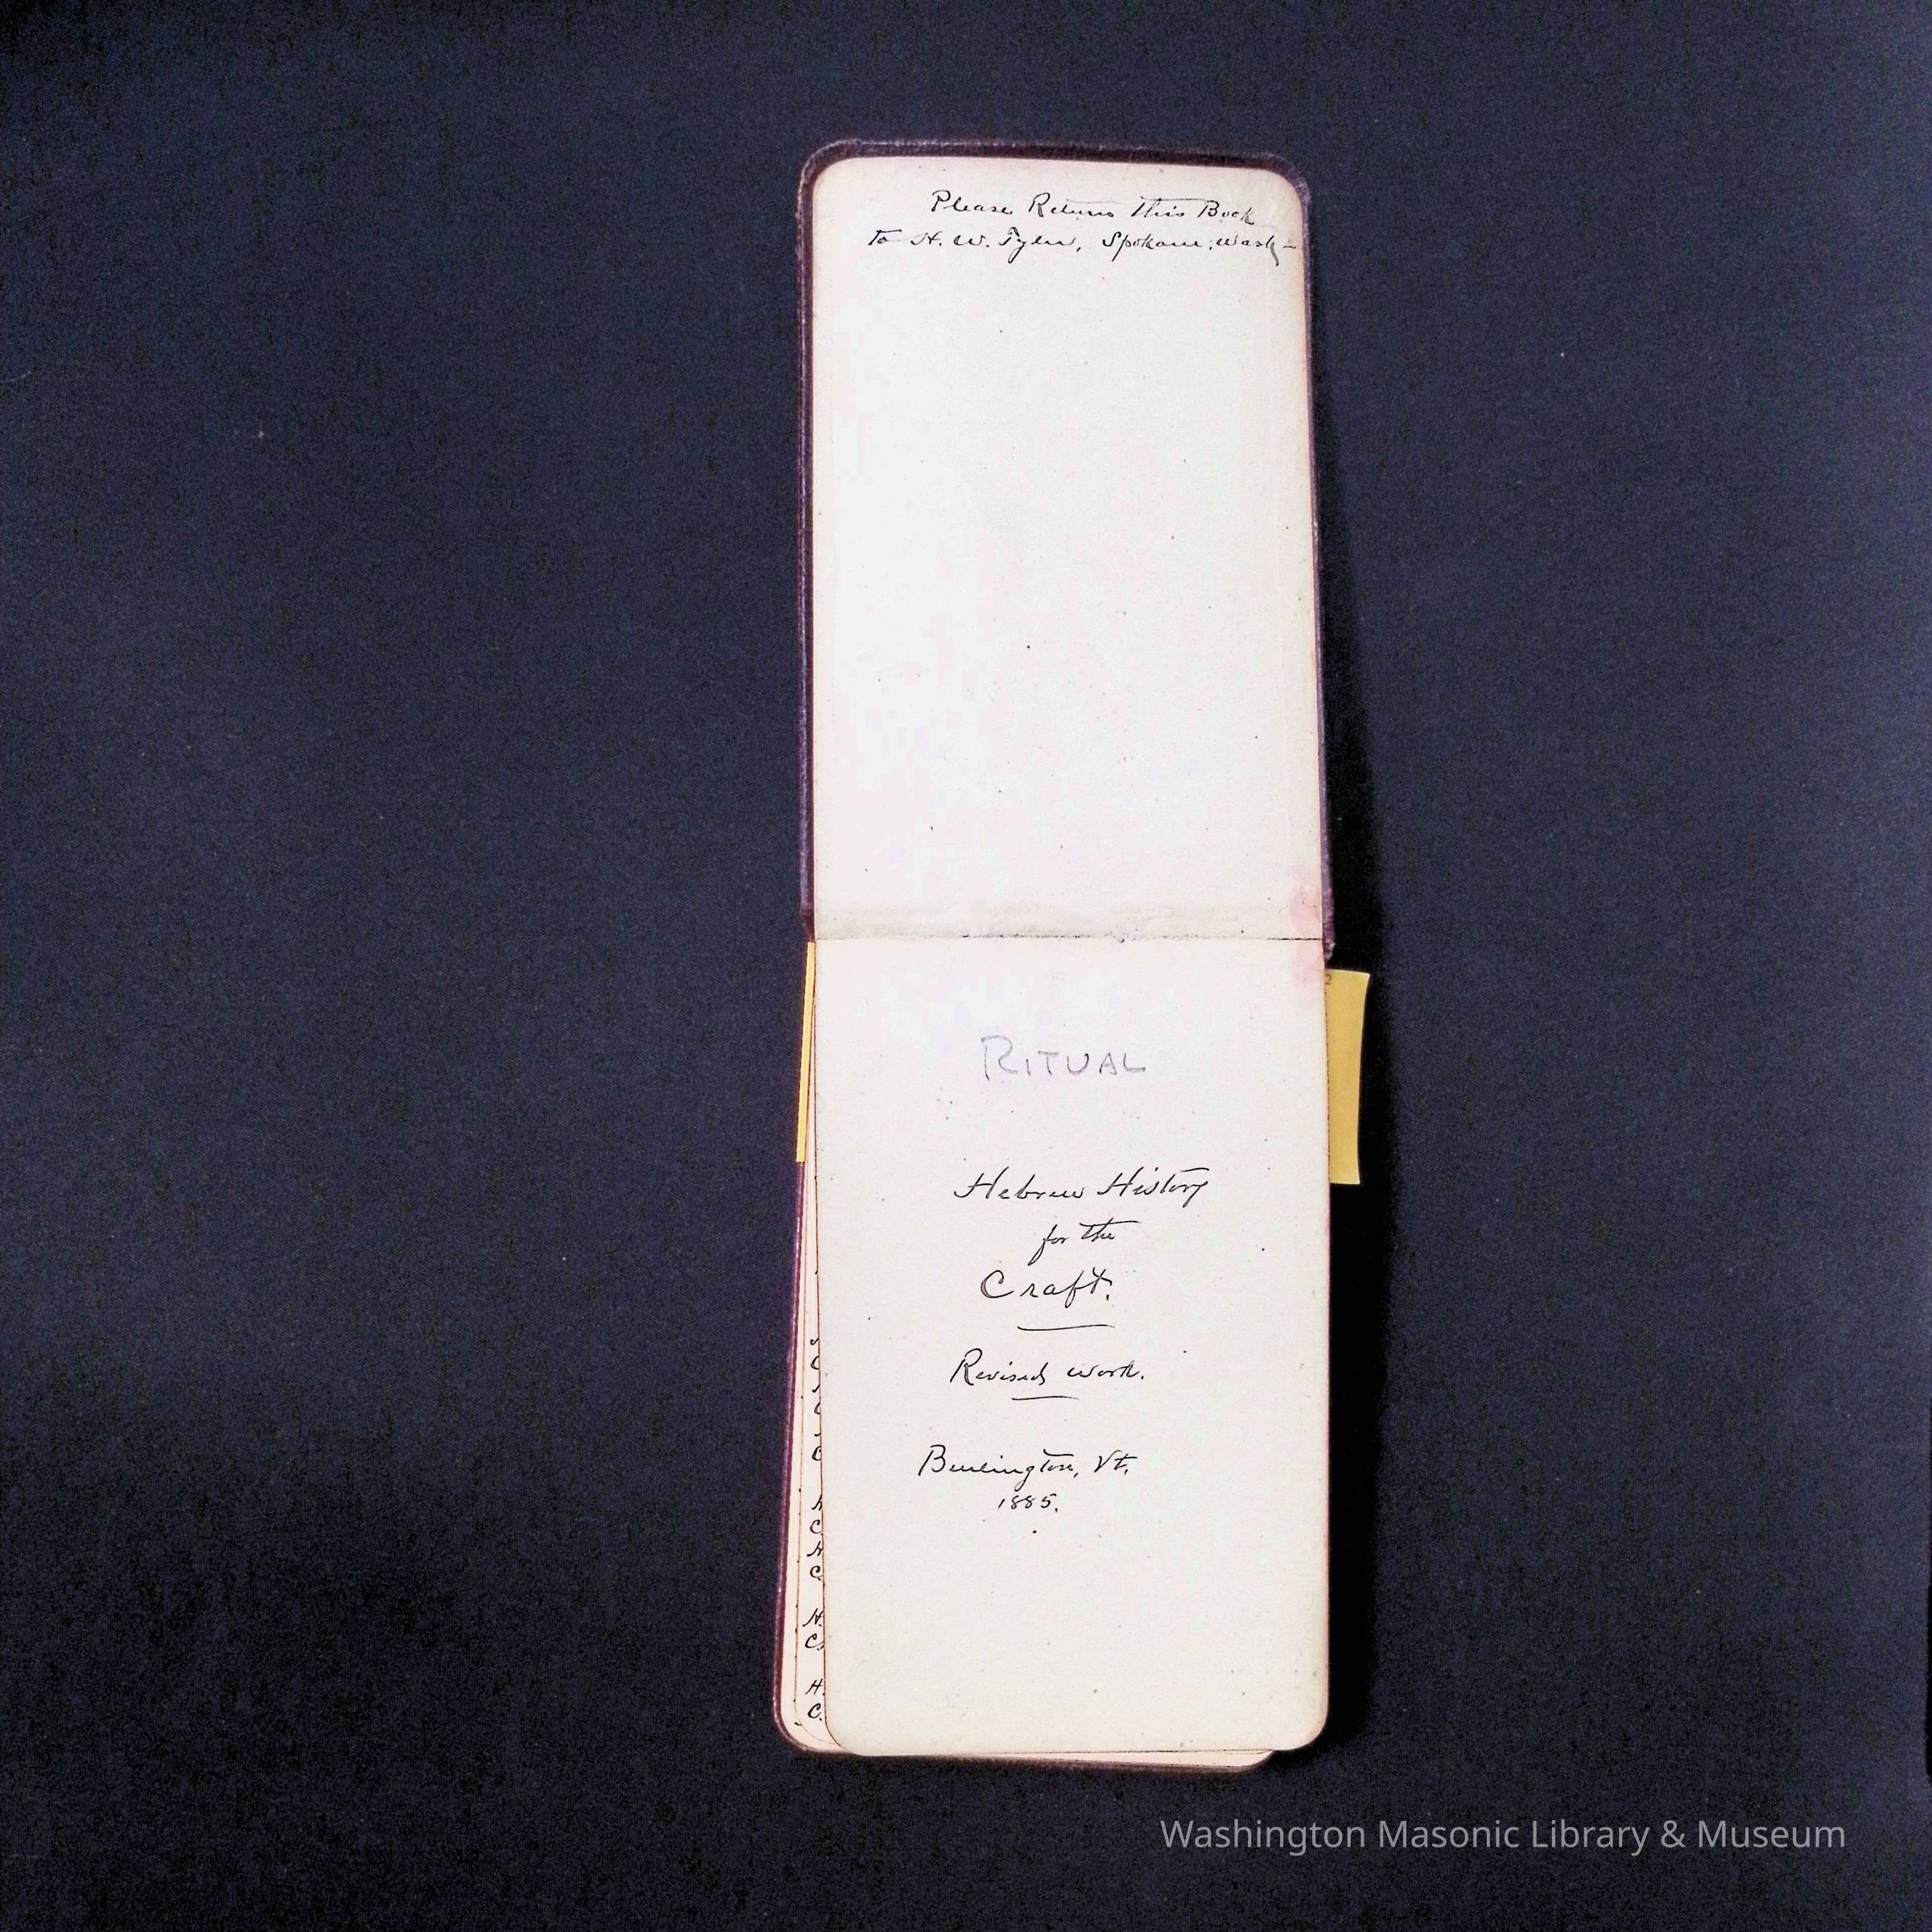 Please Return This Book
to H. W. Tyler, Spokane, Wash-
RITUAL
Hebrew History
for the
Craft.
Revised work.
Burlington, Vt.
1885.
C
C
C
H
C
H.
C.
H.
C.
Washington Masonic Library & Museum